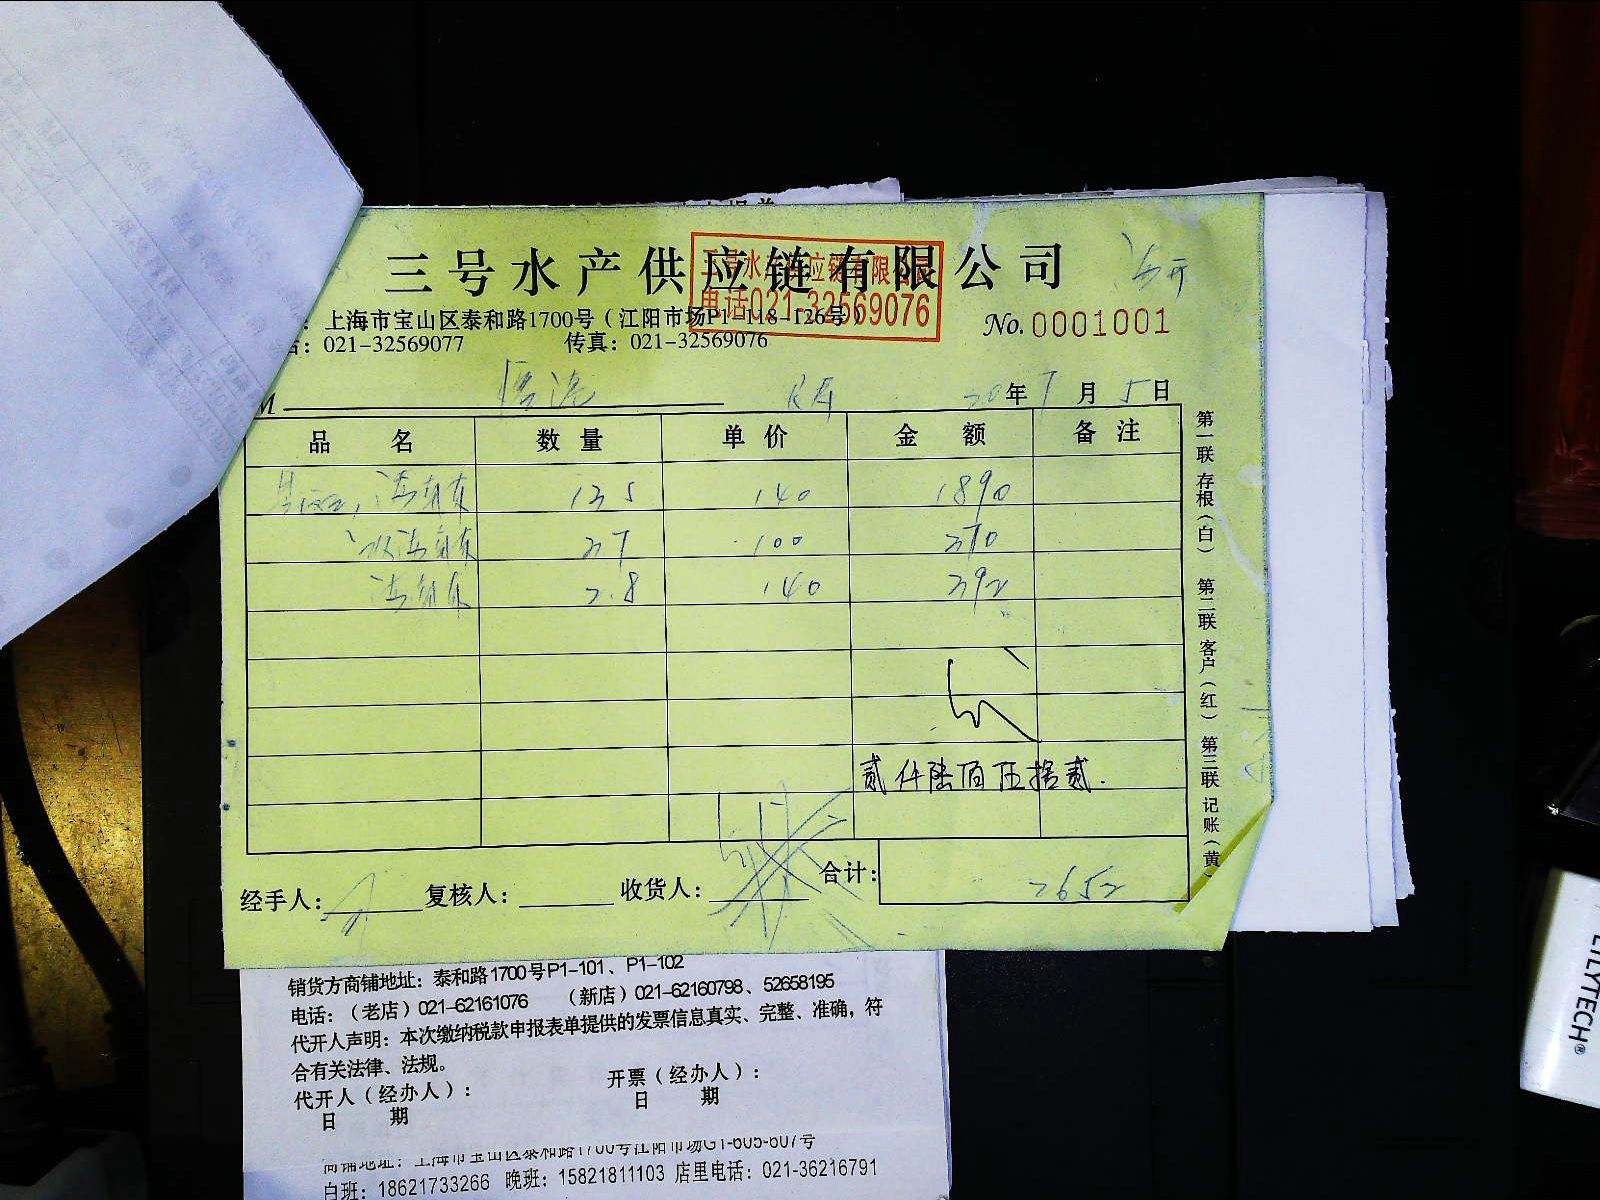 三号水产供应链有限公司
电话021-32569076
：上海市宝山区泰和路1700号（江阳市场P1-118-126号）
No.0001001
：021-32569077 传真：021-32569076
M 20年 7月 5日
品名 数量 单价 金额 备注
135 140 1890
37 100 370
2.8 140 392
贰仟陆佰伍拾贰.
合计： 2652
经手人： 复核人： 收货人：
第一联 存根（白） 第二联 客户（红） 第三联 记账（黄）
销货方商铺地址：泰和路1700号P1-101、P1-102
电话：（老店）021-62161076 （新店）021-62160798、52658195
代开人声明：本次缴纳税款申报表单提供的发票信息真实、完整、准确，符
合有关法律、法规。
代开人（经办人）： 开票（经办人）：
日 期 日 期
商铺地址：上海市宝山区泰和路1700号江阳市场G1-605-607号
白班：18621733266 晚班：15821811103 店里电话：021-36216791
LILYTECH®